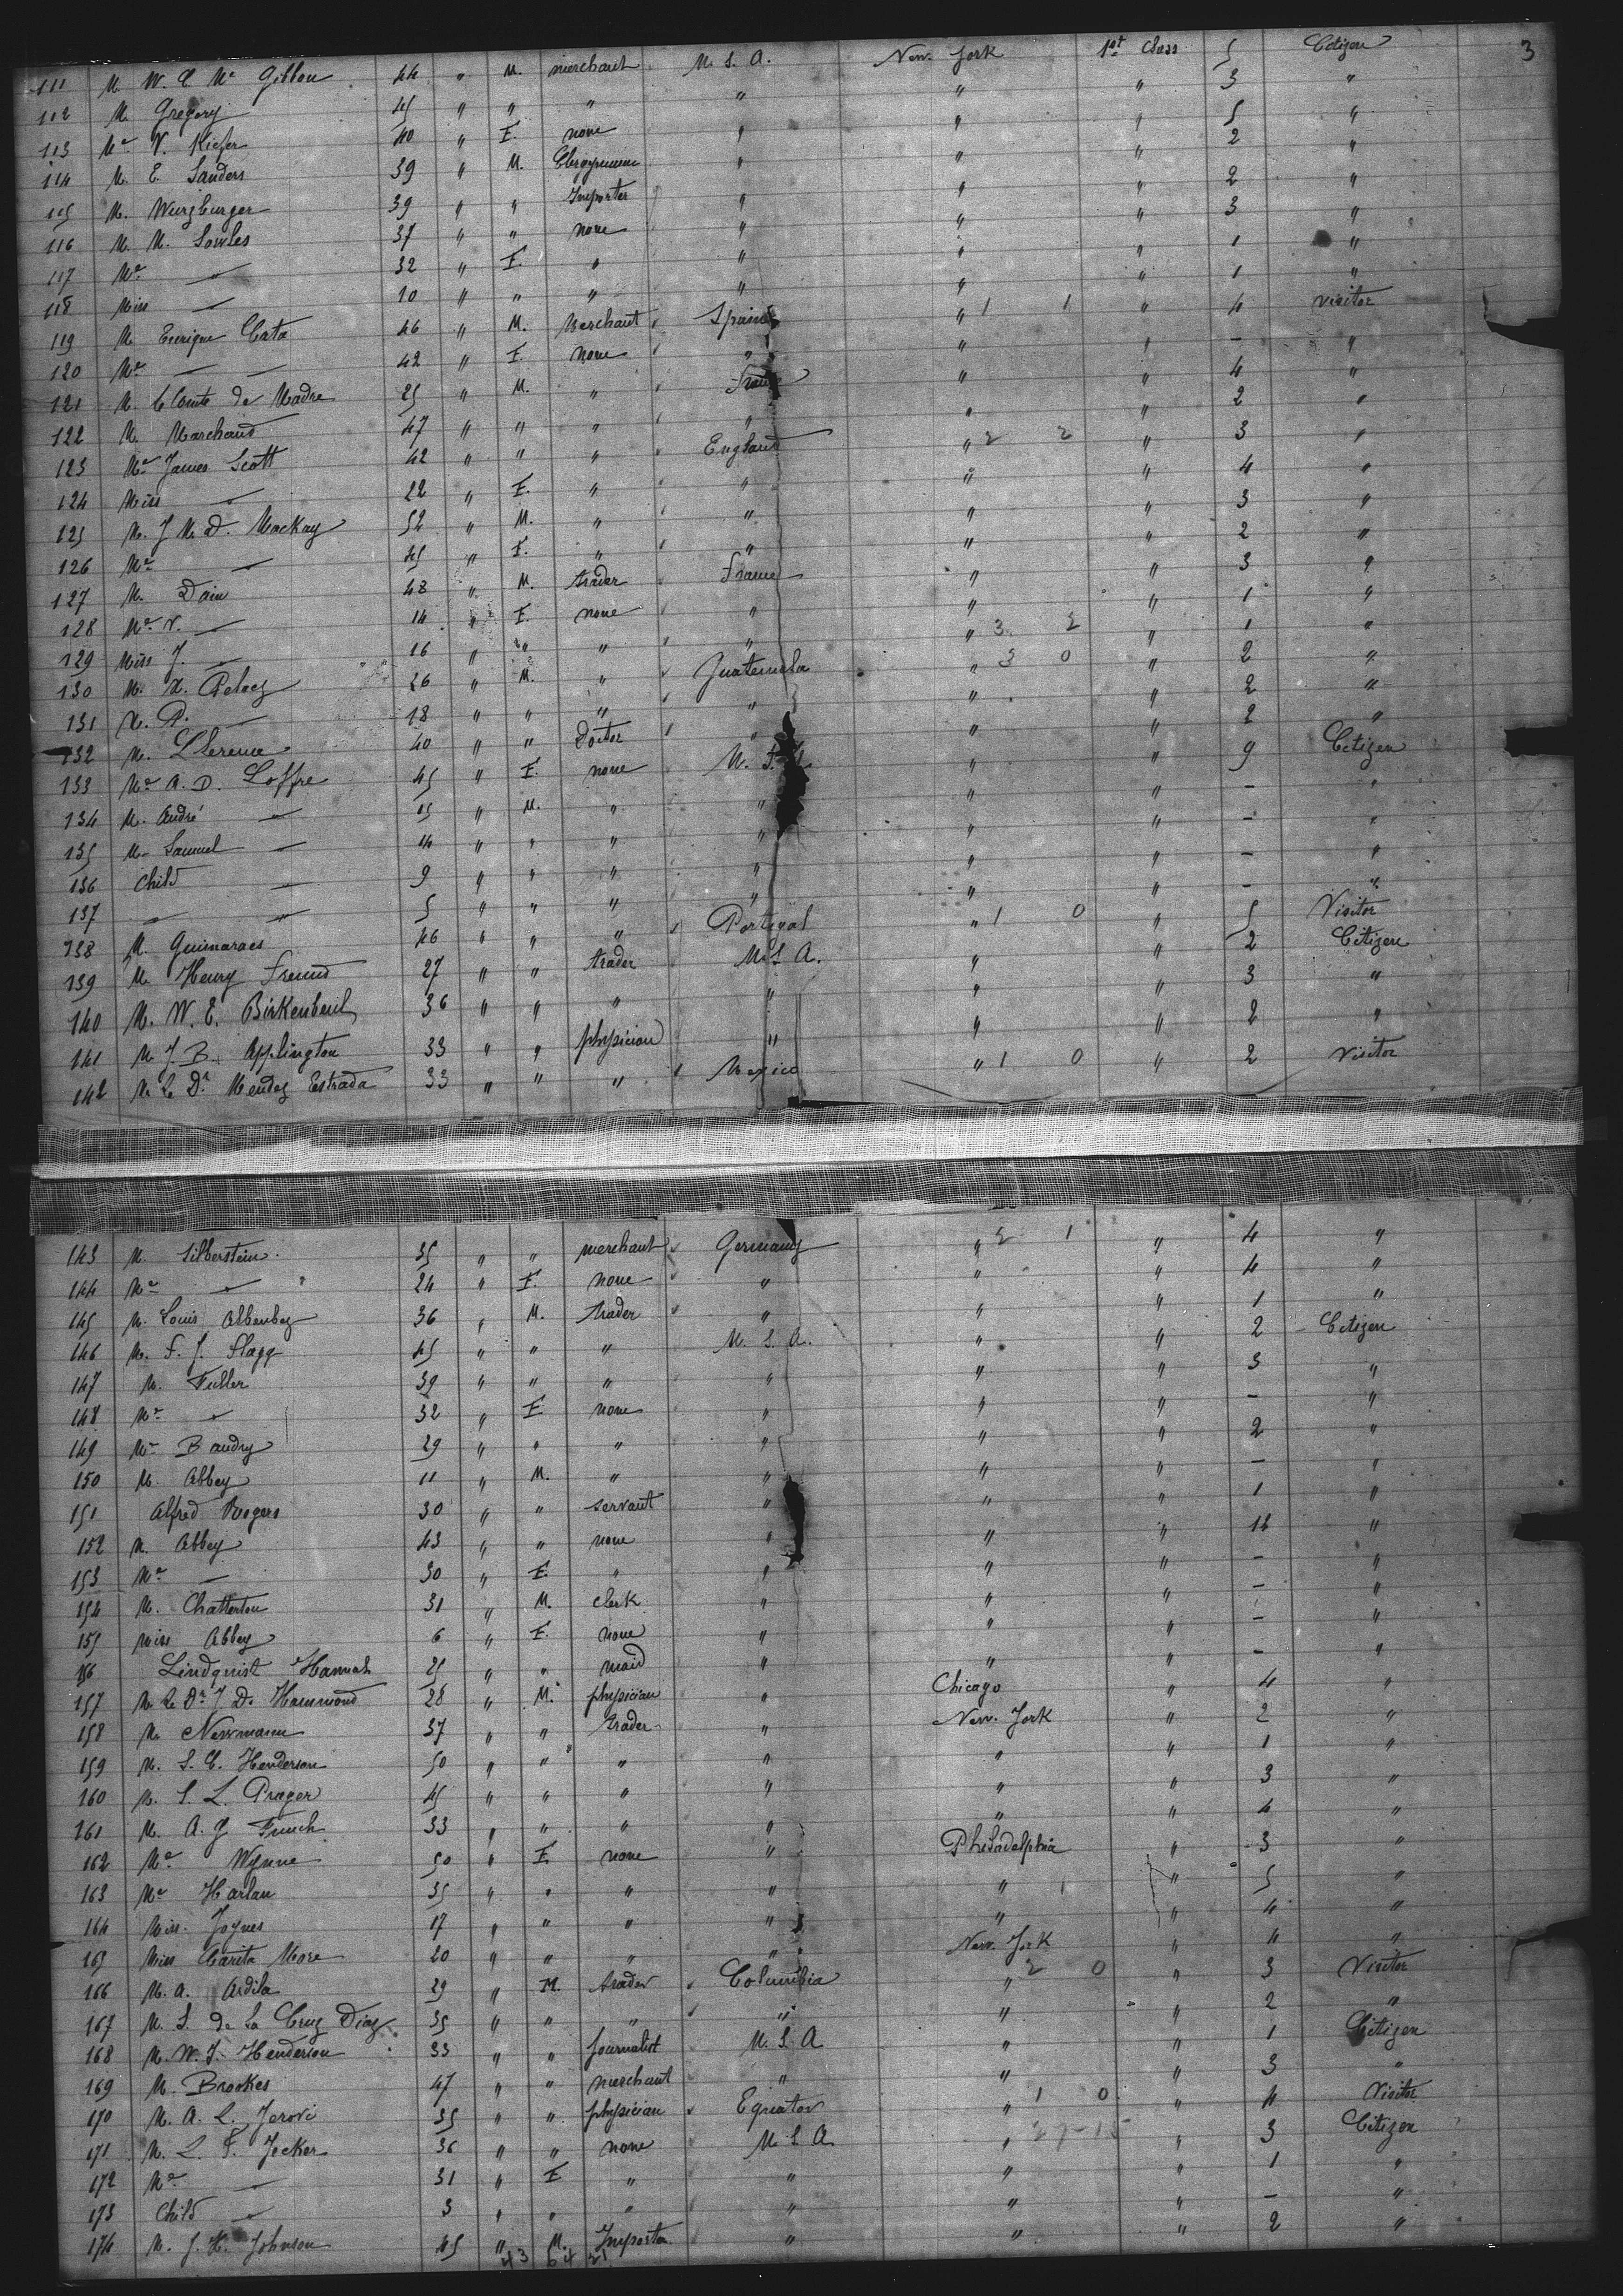 3
111 M. W. C. Mc Gibbon 44 " M. merchant U. S. A. New. York 1st Class 5 Citizen
112 M. Gregory 45 " " " " " " 3 "
113 Me V. Kiefer 40 " F. none " " " 5 "
114 M. E. Sanders 39 " M. Clergyman " " " 2 "
115 M. Wurzburger 39 " " Importer " " " 2 "
116 M. M. Sowles 37 " " none " " " 3 "
117 Me — 32 " F. " " " " 1 "
118 Miss — 10 " " " " " " 1 "
119 M. Enrique Cata 46 " M. Merchant Spain " 1 1 " 4 visitor
120 Me — — 42 " F. none " " " - "
121 M. le Comte de Madre 25 " M. " France " " 4 "
122 M. Marchand 47 " " " " " " 2 "
123 Mr James Scott 42 " " " England " 2 2 " 3 "
124 Miss — 22 " F. " " " " 4 "
125 M. J. M. D. Mackay 52 " M. " " " " 3 "
126 Me — 45 " F. " " " " 2 "
127 M. Dain 48 " M. trader France " " 3 "
128 Me V. — 14 " F. none " " " 1 "
129 Miss J. — 16 " " " " " 3 2 " 1 "
130 M. X. Pelaez 26 " M. " Guatemala " 3 0 " 2 "
131 X. P. — 18 " " " " " " 2 "
132 M. Llerena 40 " " Doctor " " " 2 "
133 Me A. D. Loffre 45 " F. none U. S. " " 9 Citizen
134 M. André — 15 " M. " " " " - "
135 M. Samuel — 14 " " " " " " - "
136 Child — 9 " " " " " " - "
137 — — 5 " " " " " " - "
138 M. Guimaraes 46 " " " Portugal " 1 0 " 5 Visitor
139 M. Henry Freund 27 " " trader U. S. A. " " 2 Citizen
140 M. W. E. Birkenbeul 36 " " " " " " 3 "
141 M. J. B. Applington 33 " " physician " " " 2 "
142 M. Le Dr. Mendez Estrada 33 " " " Mexico " 1 0 " 2 Visitor
143 M. Silberstein 35 " " merchant Germany " 2 1 " 4 "
144 Me — 24 " F. none " " " 4 "
145 M. Louis 36 " M. trader " " " 1 "
146 M. F. J. Flagg 45 " " " U. S. A. " " 2 Citizen
147 M. Fuller 39 " " " " " " 3 "
148 Me — 32 " F. none " " " - "
149 Me Baudry 29 " " " " " " 2 "
150 M. Abbey 11 " M. " " " " - "
151 Alfred Rogers 30 " " servant " " " 1 "
152 M. Abbey 43 " " none " " " 18 "
153 Me — 30 " F. " " " " - "
154 M. Chatterton 31 " M. clerk " " " - "
155 Miss Abbey 6 " F. none " " " - "
156 Lindquist Hannah 25 " " maid " " " - "
157 M. Le Dr J. D. Hammond 28 " M. physician " Chicago " 4 "
158 M. Newmann 37 " " trader " New. York " 2 "
159 M. S. C. Henderson 50 " " " " " " 1 "
160 M. S. L. Prager 45 " " " " " " 3 "
161 M. A. G. French 33 " " " " " " 4 "
162 Me Wynne 50 " F. none " Philadelphia " 3 "
163 Me Harlan 35 " " " " " " 5 "
164 Miss. Joynes 17 " " " " " " 4 "
165 Miss Carita More 20 " " " " New. York " 4 "
166 M. A. Ardila 29 " M. trader Columbia " 2 0 " 3 Visitor
167 M. S. de la Cruz Diaz 35 " " " " " " 2 "
168 M. W. J. Henderson 33 " " journalist U. S. A " " 1 Citizen
169 M. Brookes 47 " " merchant " " " 3 "
170 M. A. L. Jerovi 35 " " physician Equator " 1 0 " 4 Visitor
171 M. L. F. Jecker 36 " " none U. S. A. " 27-15 " 3 Citizen
172 Me — 31 " F. " " " " 1 "
173 Child — 3 " " " " " " - "
174 M. J. H. Johnson 45 " M. Importer " " " 2 "
43 64 21